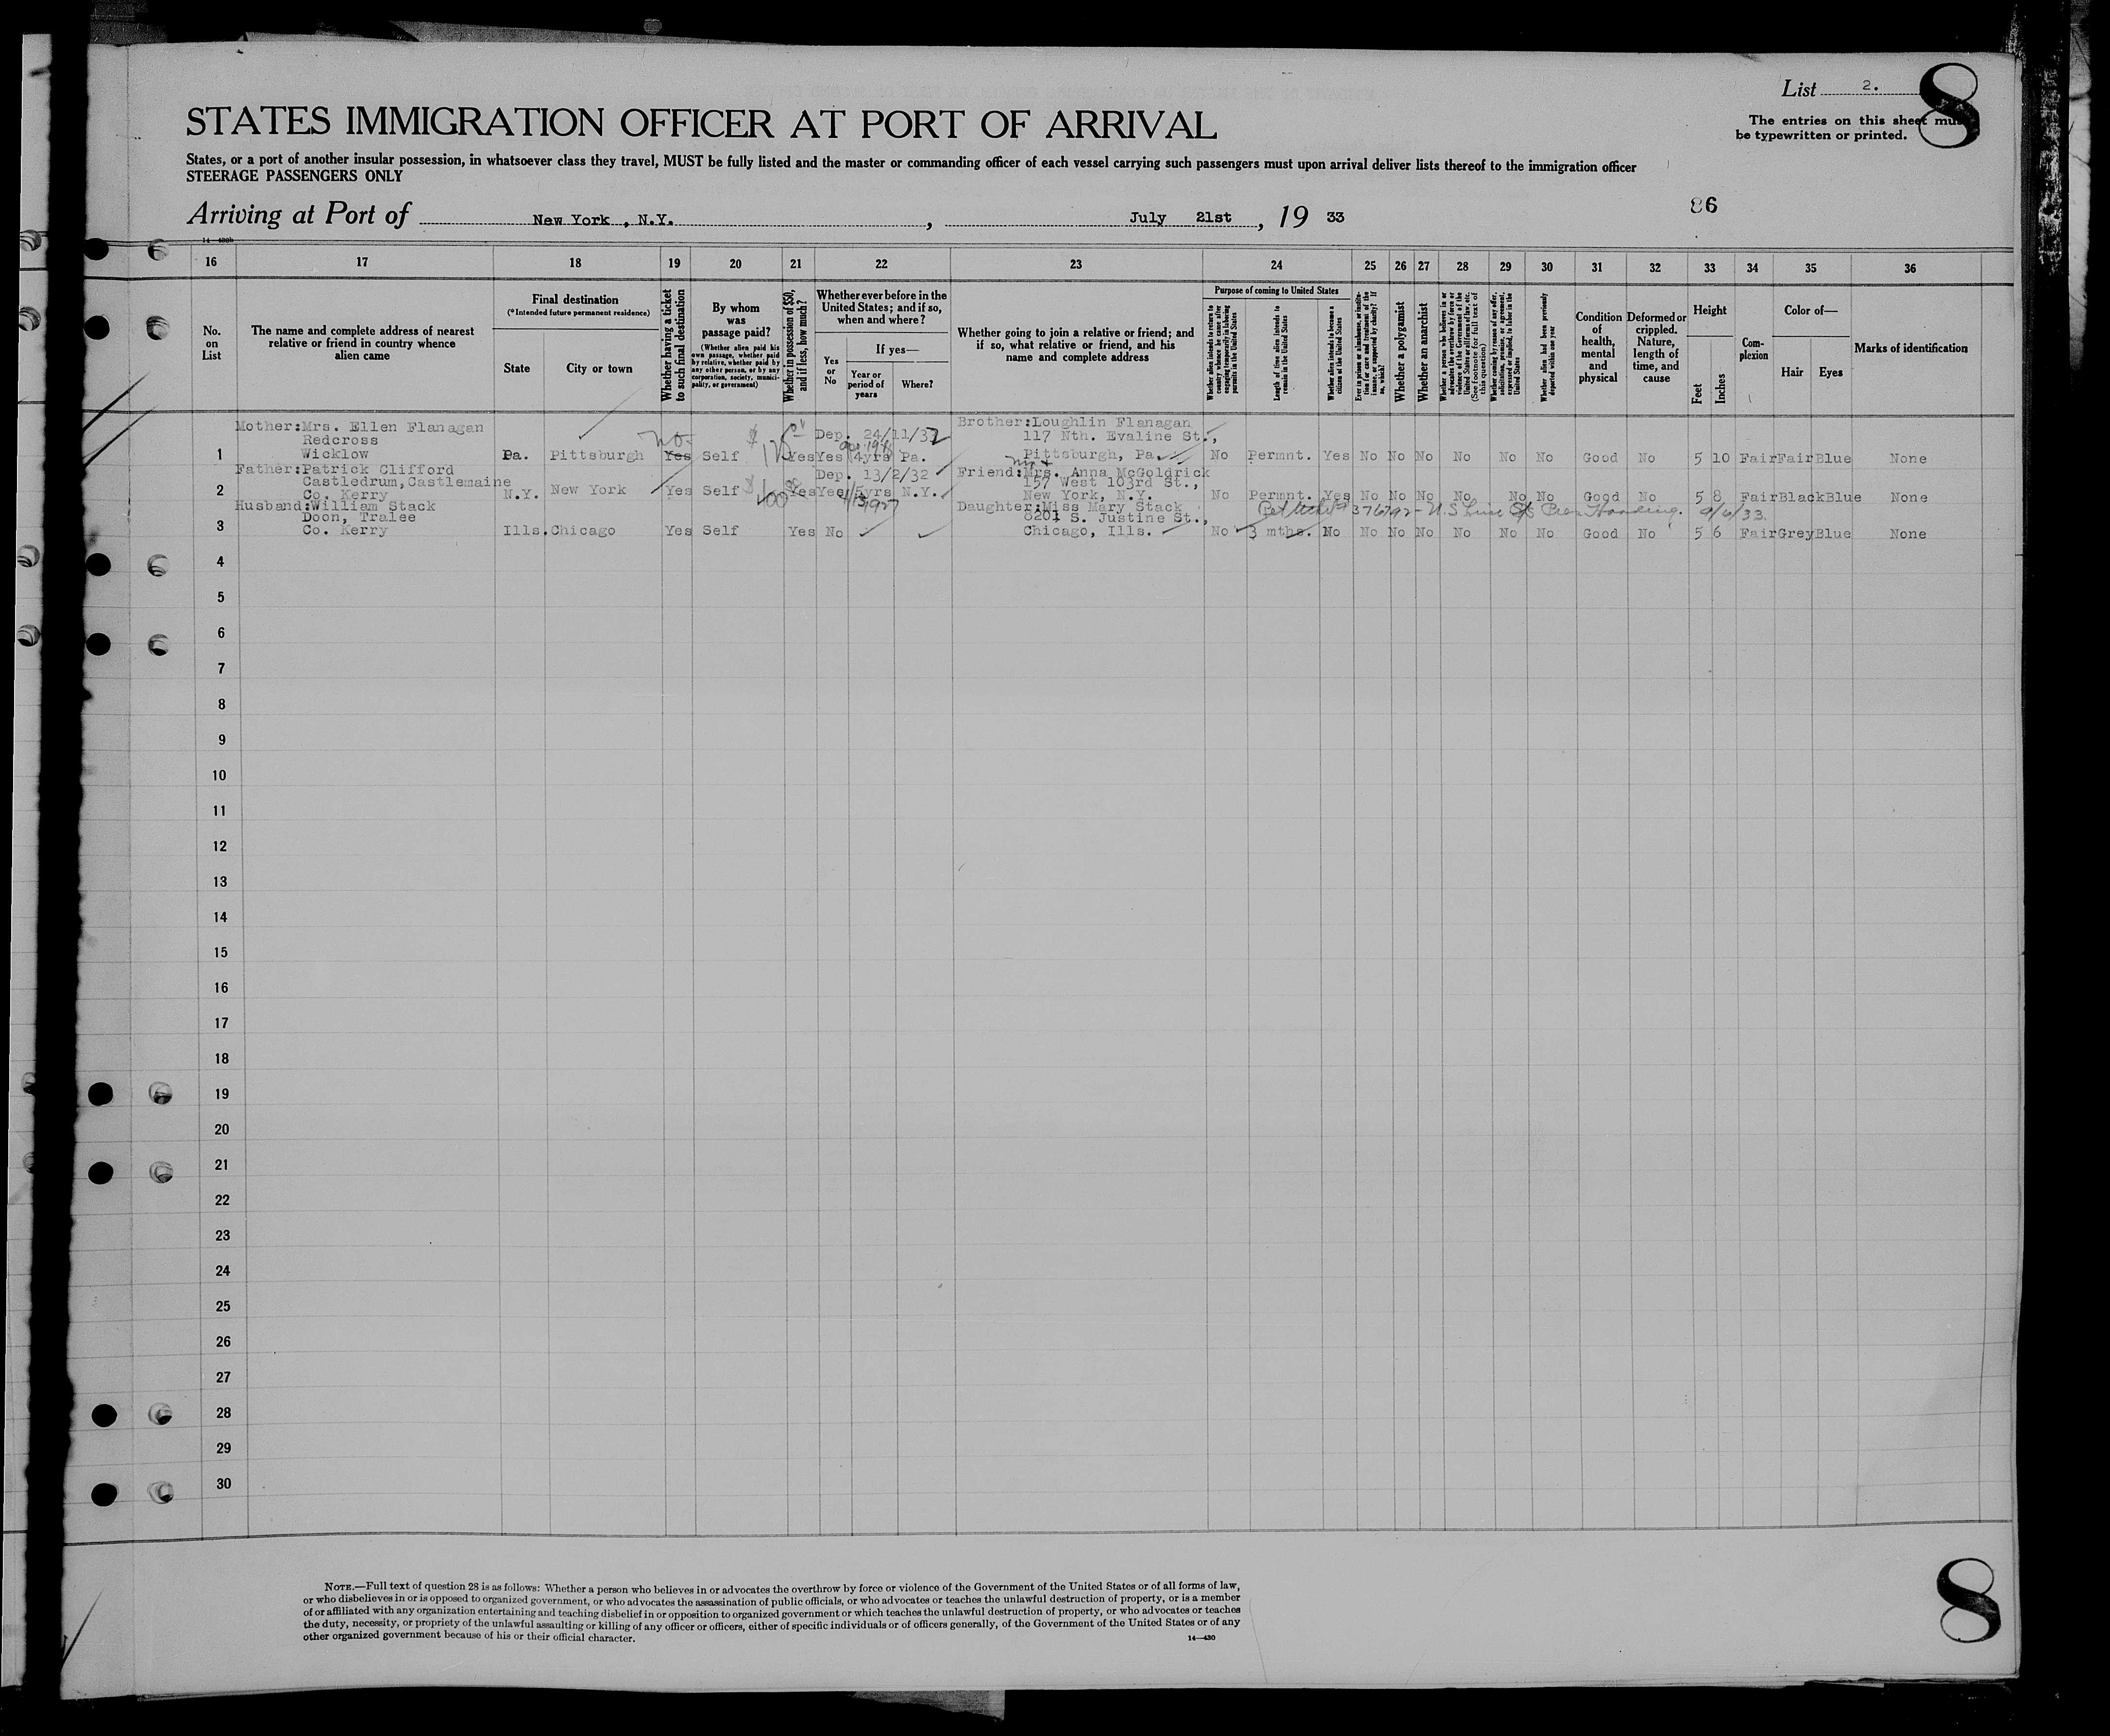 List 2.
8
The entries on this sheet must
be typewritten or printed.
STATES IMMIGRATION OFFICER AT PORT OF ARRIVAL
States, or a port of another insular possession, in whatsoever class they travel, MUST be fully listed and the master or commanding officer of each vessel carrying such passengers must upon arrival deliver lists thereof to the immigration officer
STEERAGE PASSENGERS ONLY
86
Arriving at Port of New York, N.Y., July 21st, 19 33
14—430b
16 17 18 19 20 21 22 23 24 25 26 27 28 29 30 31 32 33 34 35 36
No. on List
The name and complete address of nearest relative or friend in country whence alien came
Final destination
(*Intended future permanent residence)
State
City or town
Whether having a ticket to such final destination
By whom was passage paid?
(Whether alien paid his own passage, whether paid by relative, whether paid by any other person, or by any corporation, society, municipality, or government)
Whether in possession of $50, and if less, how much?
Whether ever before in the United States; and if so, when and where?
Yes or No
If yes—
Year or period of years
Where?
Whether going to join a relative or friend; and if so, what relative or friend, and his name and complete address
Purpose of coming to United States
Whether alien intends to return to country whence he came after engaging temporarily in laboring pursuits in the United States
Length of time alien intends to remain in the United States
Whether alien intends to become a citizen of the United States
Ever in prison or almshouse, or institution for care and treatment of the insane, or supported by charity? If so, which?
Whether a polygamist
Whether an anarchist
Whether a person who believes in or advocates the overthrow by force or violence of the Government of the United States or all forms of law, etc. (See footnote for full text of this question)
Whether coming by reason of any offer, solicitation, promise, or agreement, expressed or implied, to labor in the United States
Whether alien had been previously deported within one year
Condition of health, mental and physical
Deformed or crippled. Nature, length of time, and cause
Height
Feet
Inches
Complexion
Color of—
Hair
Eyes
Marks of identification
Mother:Mrs. Ellen Flanagan
Redcross
Wicklow
1 Pa. Pittsburgh No Yes Self Yes Yes 4yrs Pa.
Dep. 24/11/32
Brother:Loughlin Flanagan
117 Nth. Evaline St.,
Pittsburgh, Pa.
No Permnt. Yes No No No No No No Good No 5 10 Fair Fair Blue None
Father:Patrick Clifford
Castledrum,Castlemaine
Co. Kerry
2 N.Y. New York Yes Self Yes Yes 5yrs N.Y.
Dep. 13/2/32
1927
Friend:Mrs. Anna McGoldrick
157 West 103rd St.,
New York, N.Y.
No Permnt. Yes No No No No No No Good No 5 8 Fair Black Blue None
Husband:William Stack
Doon, Tralee
Co. Kerry
3 Ills. Chicago Yes Self Yes No
Daughter:Miss Mary Stack
8201 S. Justine St.,
Chicago, Ills.
376792 - U.S. Lines S/S Pres Harding. 9/6/33
No 3 mths. No No No No No No No Good No 5 6 Fair Grey Blue None
4
5
6
7
8
9
10
11
12
13
14
15
16
17
18
19
20
21
22
23
24
25
26
27
28
29
30
NOTE.—Full text of question 28 is as follows: Whether a person who believes in or advocates the overthrow by force or violence of the Government of the United States or of all forms of law,
or who disbelieves in or is opposed to organized government, or who advocates the assassination of public officials, or who advocates or teaches the unlawful destruction of property, or is a member
of or affiliated with any organization entertaining and teaching disbelief in or opposition to organized government or which teaches the unlawful destruction of property, or who advocates or teaches
the duty, necessity, or propriety of the unlawful assaulting or killing of any officer or officers, either of specific individuals or of officers generally, of the Government of the United States or of any
other organized government because of his or their official character.
14—430
8